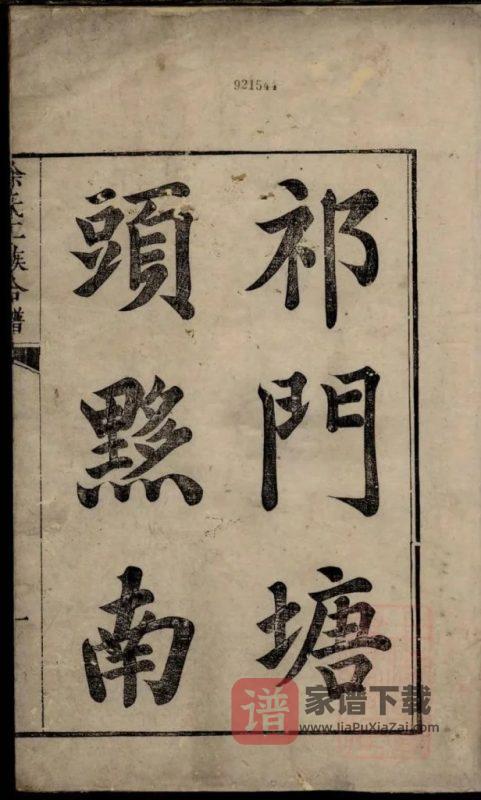 921544
祁門塘
頭黟南
氏二族合譜
一
谱
家谱下载
www.JiaPuXiaZai.com